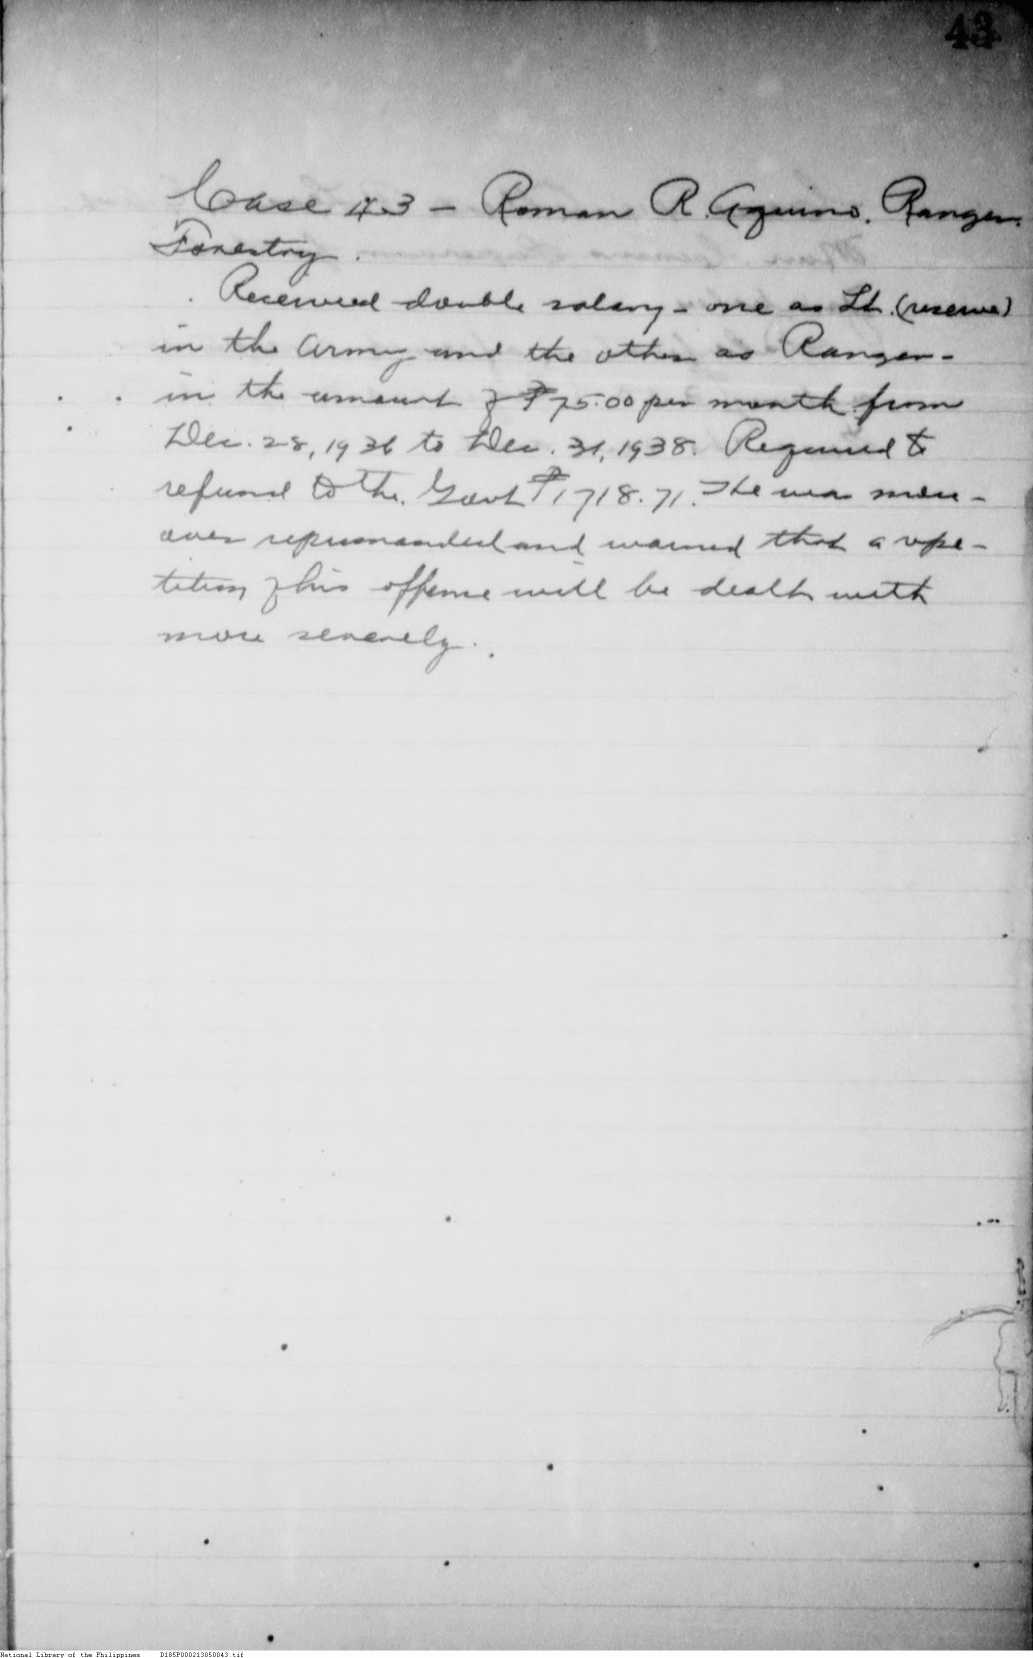 43
Case 43 - Roman R. Aquino, Ranger
Forestry.
Received double salary - one as Lt. (reserve)
in the Army and the other as Ranger -
in the amount of ₱75.00 per month from
Dec. 28, 1936 to Dec. 31, 1938. Required to
refund to the Govt ₱1718.71. He was more-
over reprimanded and warned that a repe-
tition of his offense will be dealt with
more severely.
National Library of the Philippines D185P000213050043.tif